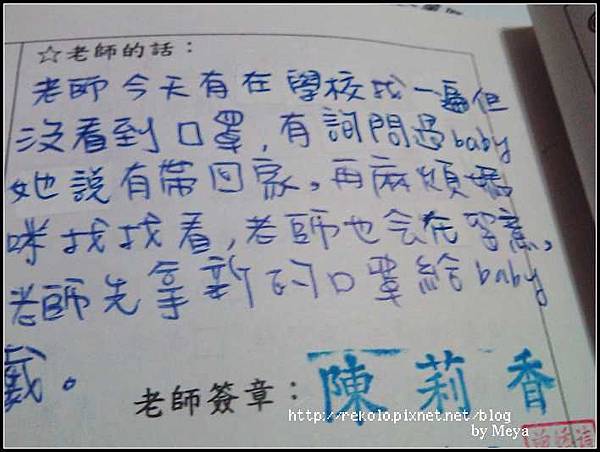 ☆老師的話：
老師今天有在學校找一遍但
沒看到口罩,有詢問過baby
她說有帶回家。再麻煩媽
咪找找看,老師也会在留意,
老師先拿新的口罩給baby
戴。
老師簽章：陳莉香
http://rekolo.pixnet.net/blog
by Meya